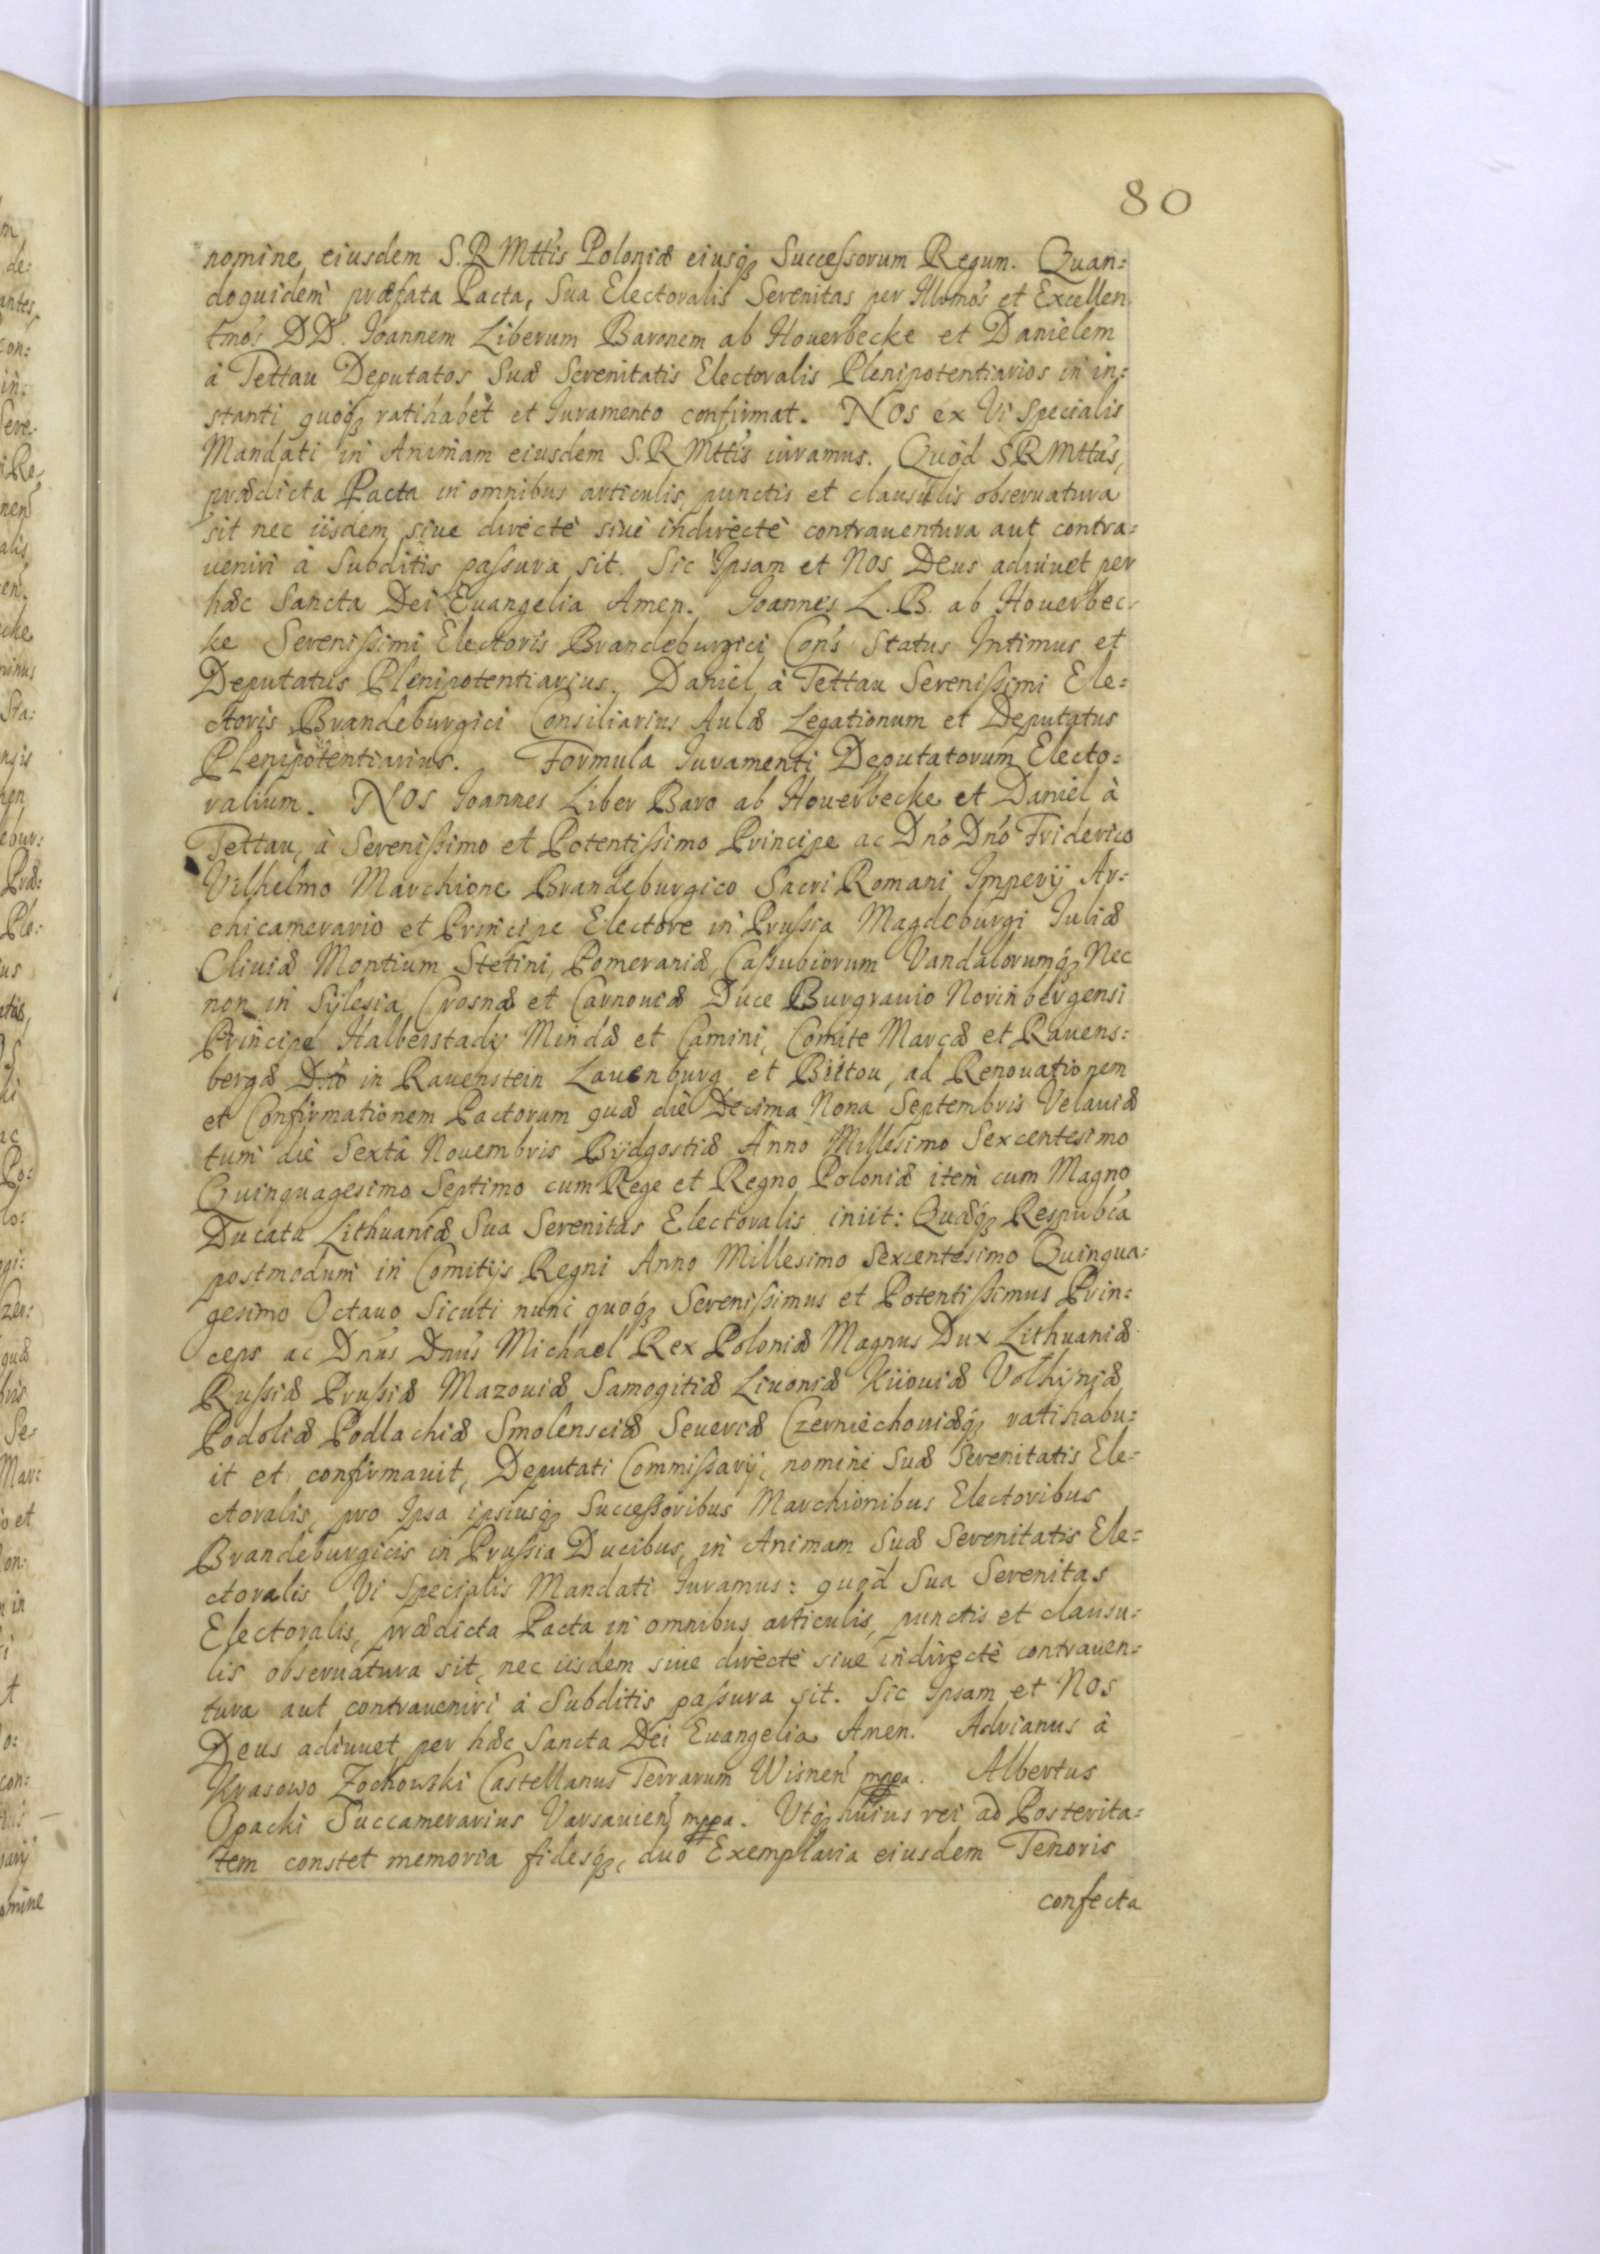 80
nomine eiusdem S.R Mttis Poloniæ eiusq; Successorum Regum. Quan:
doquidem præfata Pacta, Sua Electoralis Serenitas per Illvmos et Excellen
tmos DD. Ioannem Liberum Baronem ab Houerbecke et Danielem
à Tettau Deputatos Suæ Serenitatis Electoralis Plenipotentiarios in in:
stanti quoq; ratihabet et Iuramento confirmat. NOS ex Vi Specialis
Mandati in Animam eiusdem S.R Mttis iuramus. Quod S R Mttas,
prædicta Pacta in omnibus articulis, punctis et clausulis obseruatura
sit nec iisdem siue directè siue indirectè contrauentura aut contra:
ueniri à Subditis passura sit. Sic Ipsam et NOS Deus adiuuet per
hæc Sancta Dei Euangelia Amen. Ioannes L. B. ab Houerbec:
ke Serenissimi Electoris Brandeburgici Cons Status Intimus et
Deputatus Plenipotentiarius. Daniel à Tettau Serenissimi Ele:
ctoris Brandeburgici Consiliarius Aulæ Legationum et Deputatus
Plenipotentiarius. Formula Iuramenti Deputatorum Electo:
ralium. NOS Ioannes Liber Baro ab Houerbecke et Daniel à
Tettau, à Serenissimo et Potentissimo Principe ac Dno Dno Friderico
Vilhelmo Marchione Brandeburgico Sacri Romani Imperij Ar:
chicamerario et Principe Electore in Prussia Magdeburgi Iuliæ
Cliuiæ Montium Stetini, Pomeraniæ, Cassubiorum Vandalorumq; Nec
non in Sylesia, Crosnæ et Carnouiæ Duce Burgrauio Norinbergensi
Principe Halberstadij Mindæ et Camini, Comite Marcæ et Rauens:
bergæ Dno in Rauenstein Lauenburg et Büttou, ad Renouationem
et Confirmationem Pactorum quæ die Decima Nona Septembris Velauiæ
tum die Sextâ Nouembris Bydgostiæ Anno Millesimo Sexcentesimo
Quinquagesimo Septimo cum Rege et Regno Poloniæ item cum Magno
Ducatu Lithuaniæ Sua Serenitas Electoralis iniit: Quæq; Respubca
postmodum in Comitijs Regni Anno Millesimo Sexcentesimo Quinqua:
gesimo Octauo Sicuti nunc quoq; Serenissimus et Potentissimus Prin:
ceps ac Dnus Dnus Michael Rex Poloniæ Magnus Dux Lithuaniæ
Russiæ Prussiæ Mazouiæ Samogitiæ Liuoniæ Kiiouiæ Volhiniæ
Podoliæ Podlachiæ Smolensciæ Seueriæ Czerniechouiæq; ratihabu:
it et confirmauit, Deputati Commissarij, nomine Suæ Serenitatis Ele:
ctoralis, pro Ipsa ipsiusq; Successoribus Marchionibus Electoribus
Brandeburgicis in Prussia Ducibus, in Animam Suæ Serenitatis Ele:
ctoralis Vi Specialis Mandati Iuramus: quod Sua Serenitas
Electoralis, prædicta Pacta in omnibus articulis, punctis et clausu:
lis obseruatura sit, nec iisdem siue directè siue indirectè contrauen:
tura aut contraueniri à Subditis passura sit. Sic Ipsam et NOS
Deus adiuuet per hæc Sancta Dei Euangelia Amen. Adrianus à
Krasowo Zochowski Castellanus Terrarum Wisnen mppa. Albertus
Opacki Succamerarius Varsauien mppa. Utq; huius rei ad Posterita:
tem constet memoria fidesq;, duo Exemplaria eiusdem Tenoris
confecta